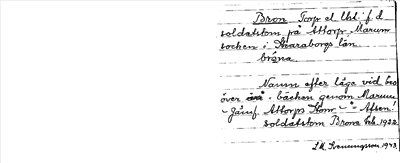 Bron Torp el. lht. f. d.
soldatstom på Attorp, Marum
socken i Skaraborgs län
bråna.
Namn efter läge vid bro
över bäcken genom Marum
- Jämf. Attorps
soldatstom Brona lht. 1922.
L.M. Svenungsson 1943